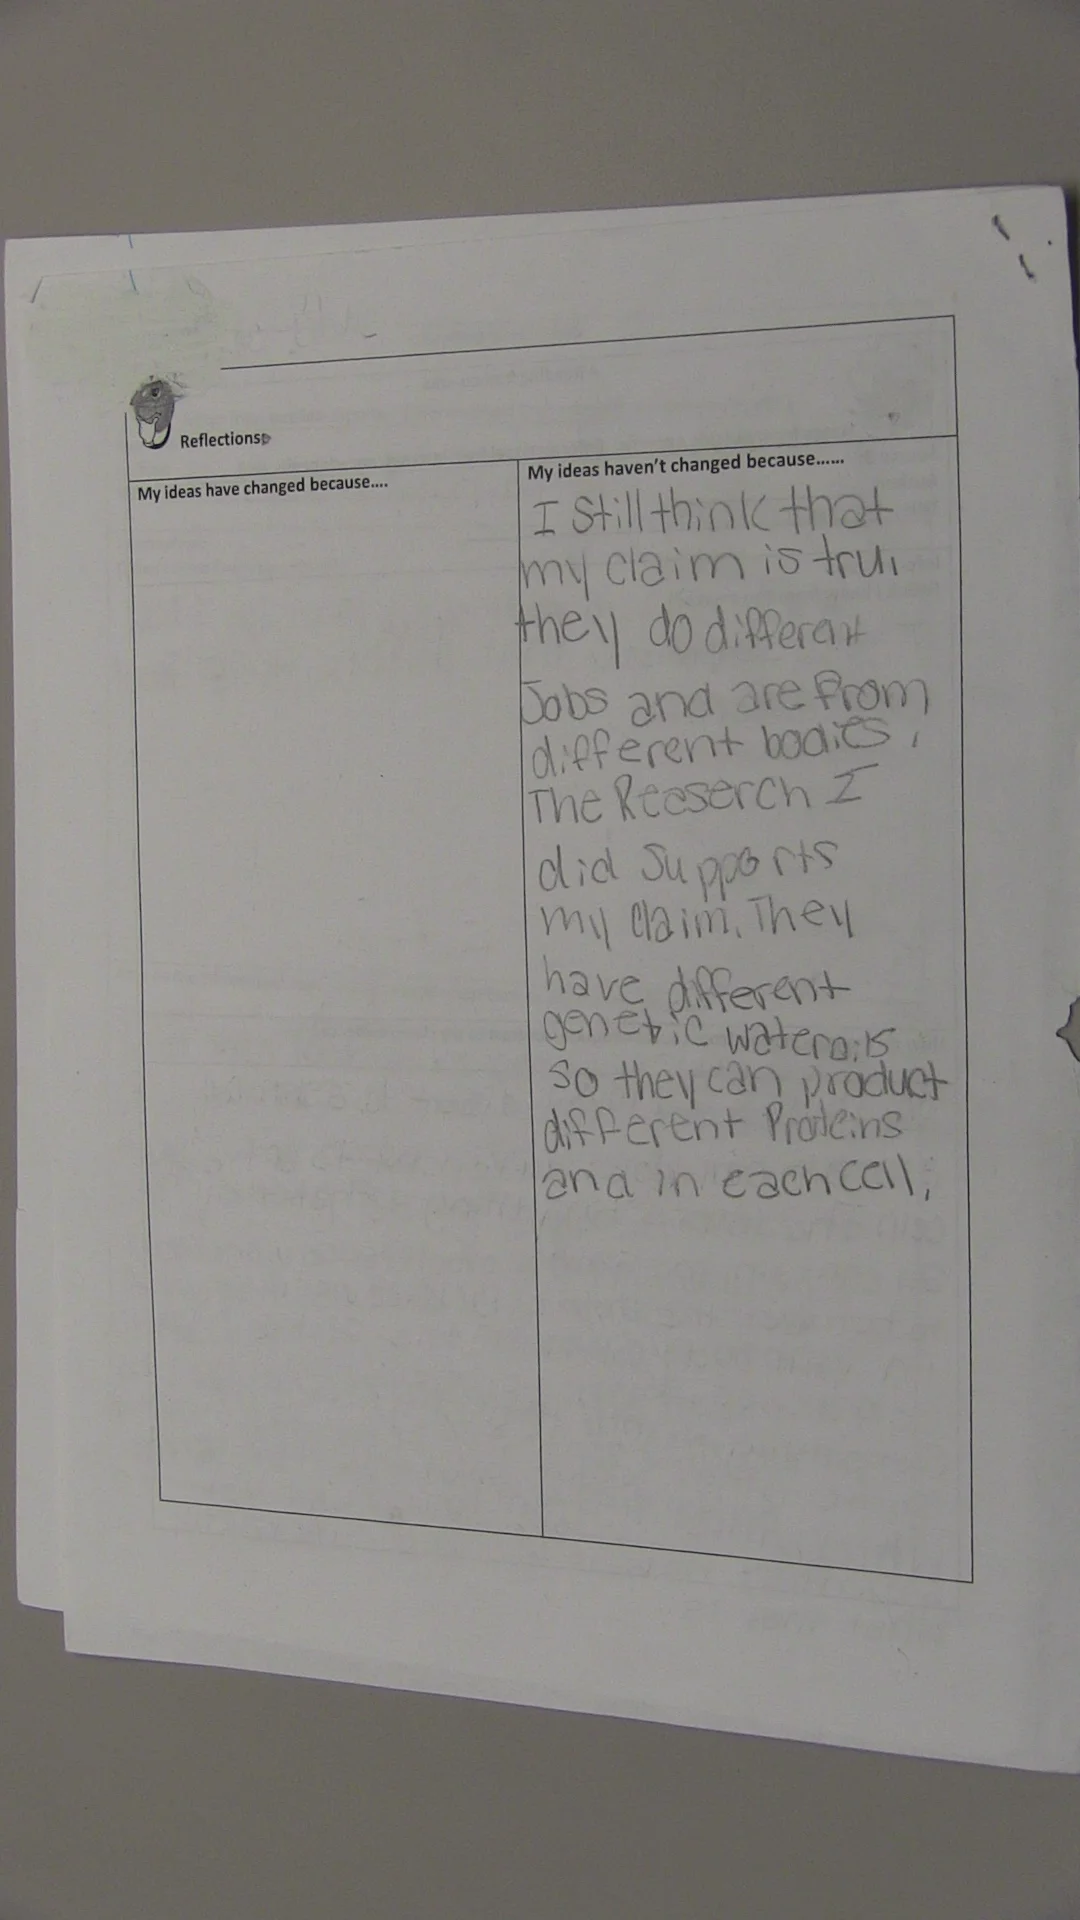 Reflections
My ideas have changed because....
My ideas haven't changed because......
I still think that
my claim is tru,
they do different
Jobs and are from
different bodies,
The Reaserch I
did supports
my claim. They
have different
genetic waterails
so they can product
different Proteins
and in each cell,